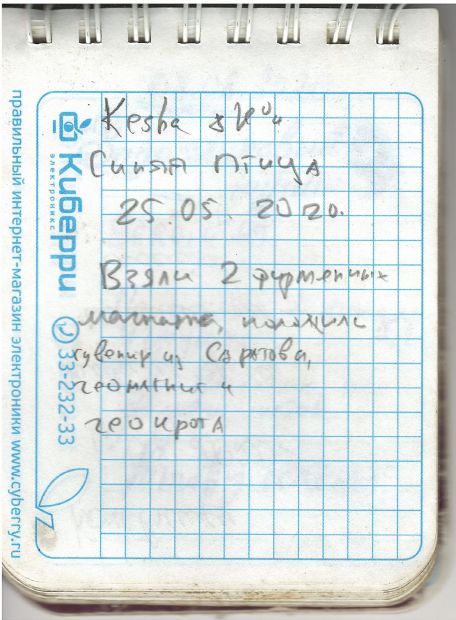 Kesha & Ко
Синяя птица
25.05.2020.
Взяли 2 фирменных
магнита, положили
сувенир из Саратова,
геомагнит и
геокрота
Киберри
электроникс
33-232-33
правильный интернет-магазин электроники www.cyberry.ru